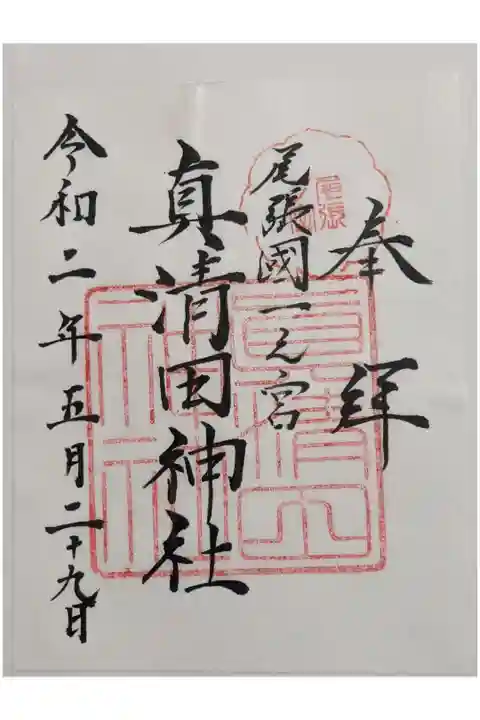 奉拝
尾張國一之宮
真清田神社
令和二年五月二十九日